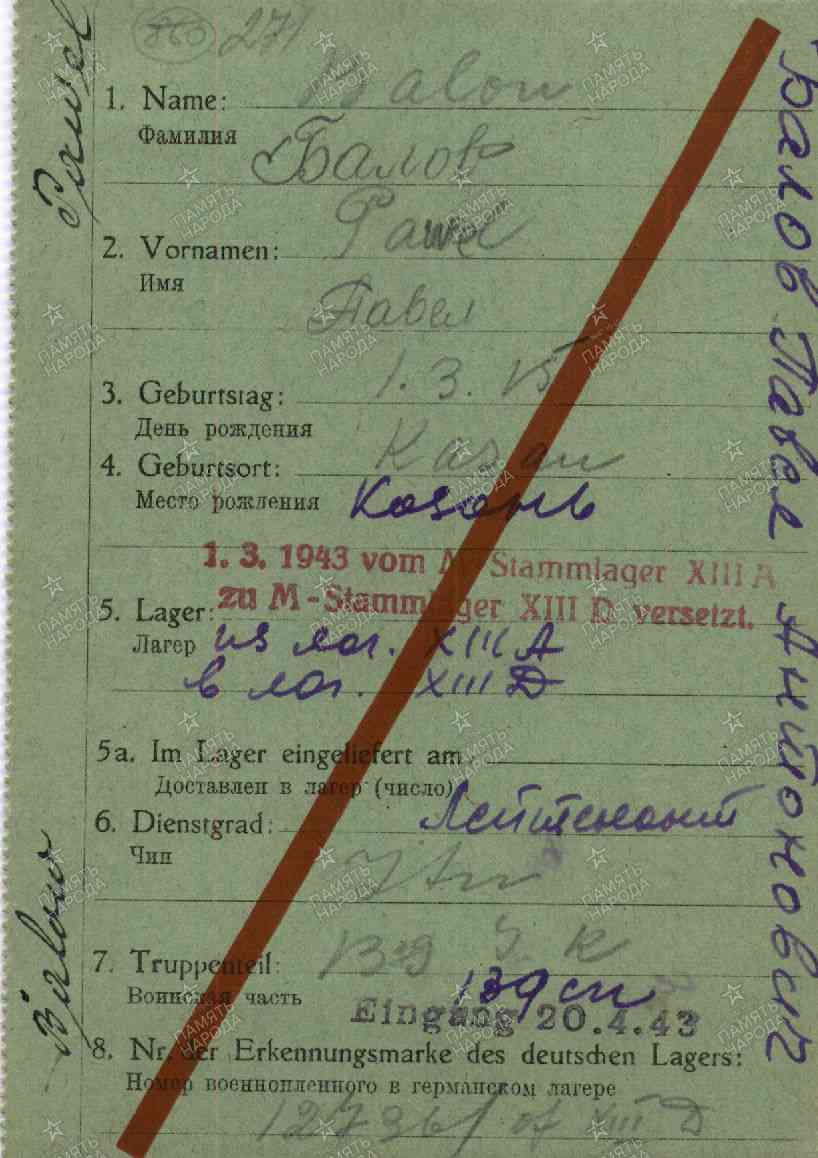 271
1. Name: Balow
Фамилия
Балов
2. Vornamen: Pawel
Имя
Павел
3. Geburtstag: 1. 3. 15
День рождения
4. Geburtsort: Kasan
Место рождения Казань
1. 3. 1943 vom M-Stammlager XIII A
zu M-Stammlager XIII D versetzt.
5. Lager:
Лагер из лаг. XIII A
в лаг. XIII D
5a. Im Lager eingeliefert am
Доставлен в лагер (число)
6. Dienstgrad: Лейтенант
Чин
Ltn
7. Truppenteil: 139 S. R
Воинская часть 139 сп
Eingang 20.4.43
8. Nr. der Erkennungsmarke des deutschen Lagers:
Номер военнопленного в германском лагере
of XIII D
Pawel
Balow
Балов Павел Антонович
ПАМЯТЬ
НАРОДА